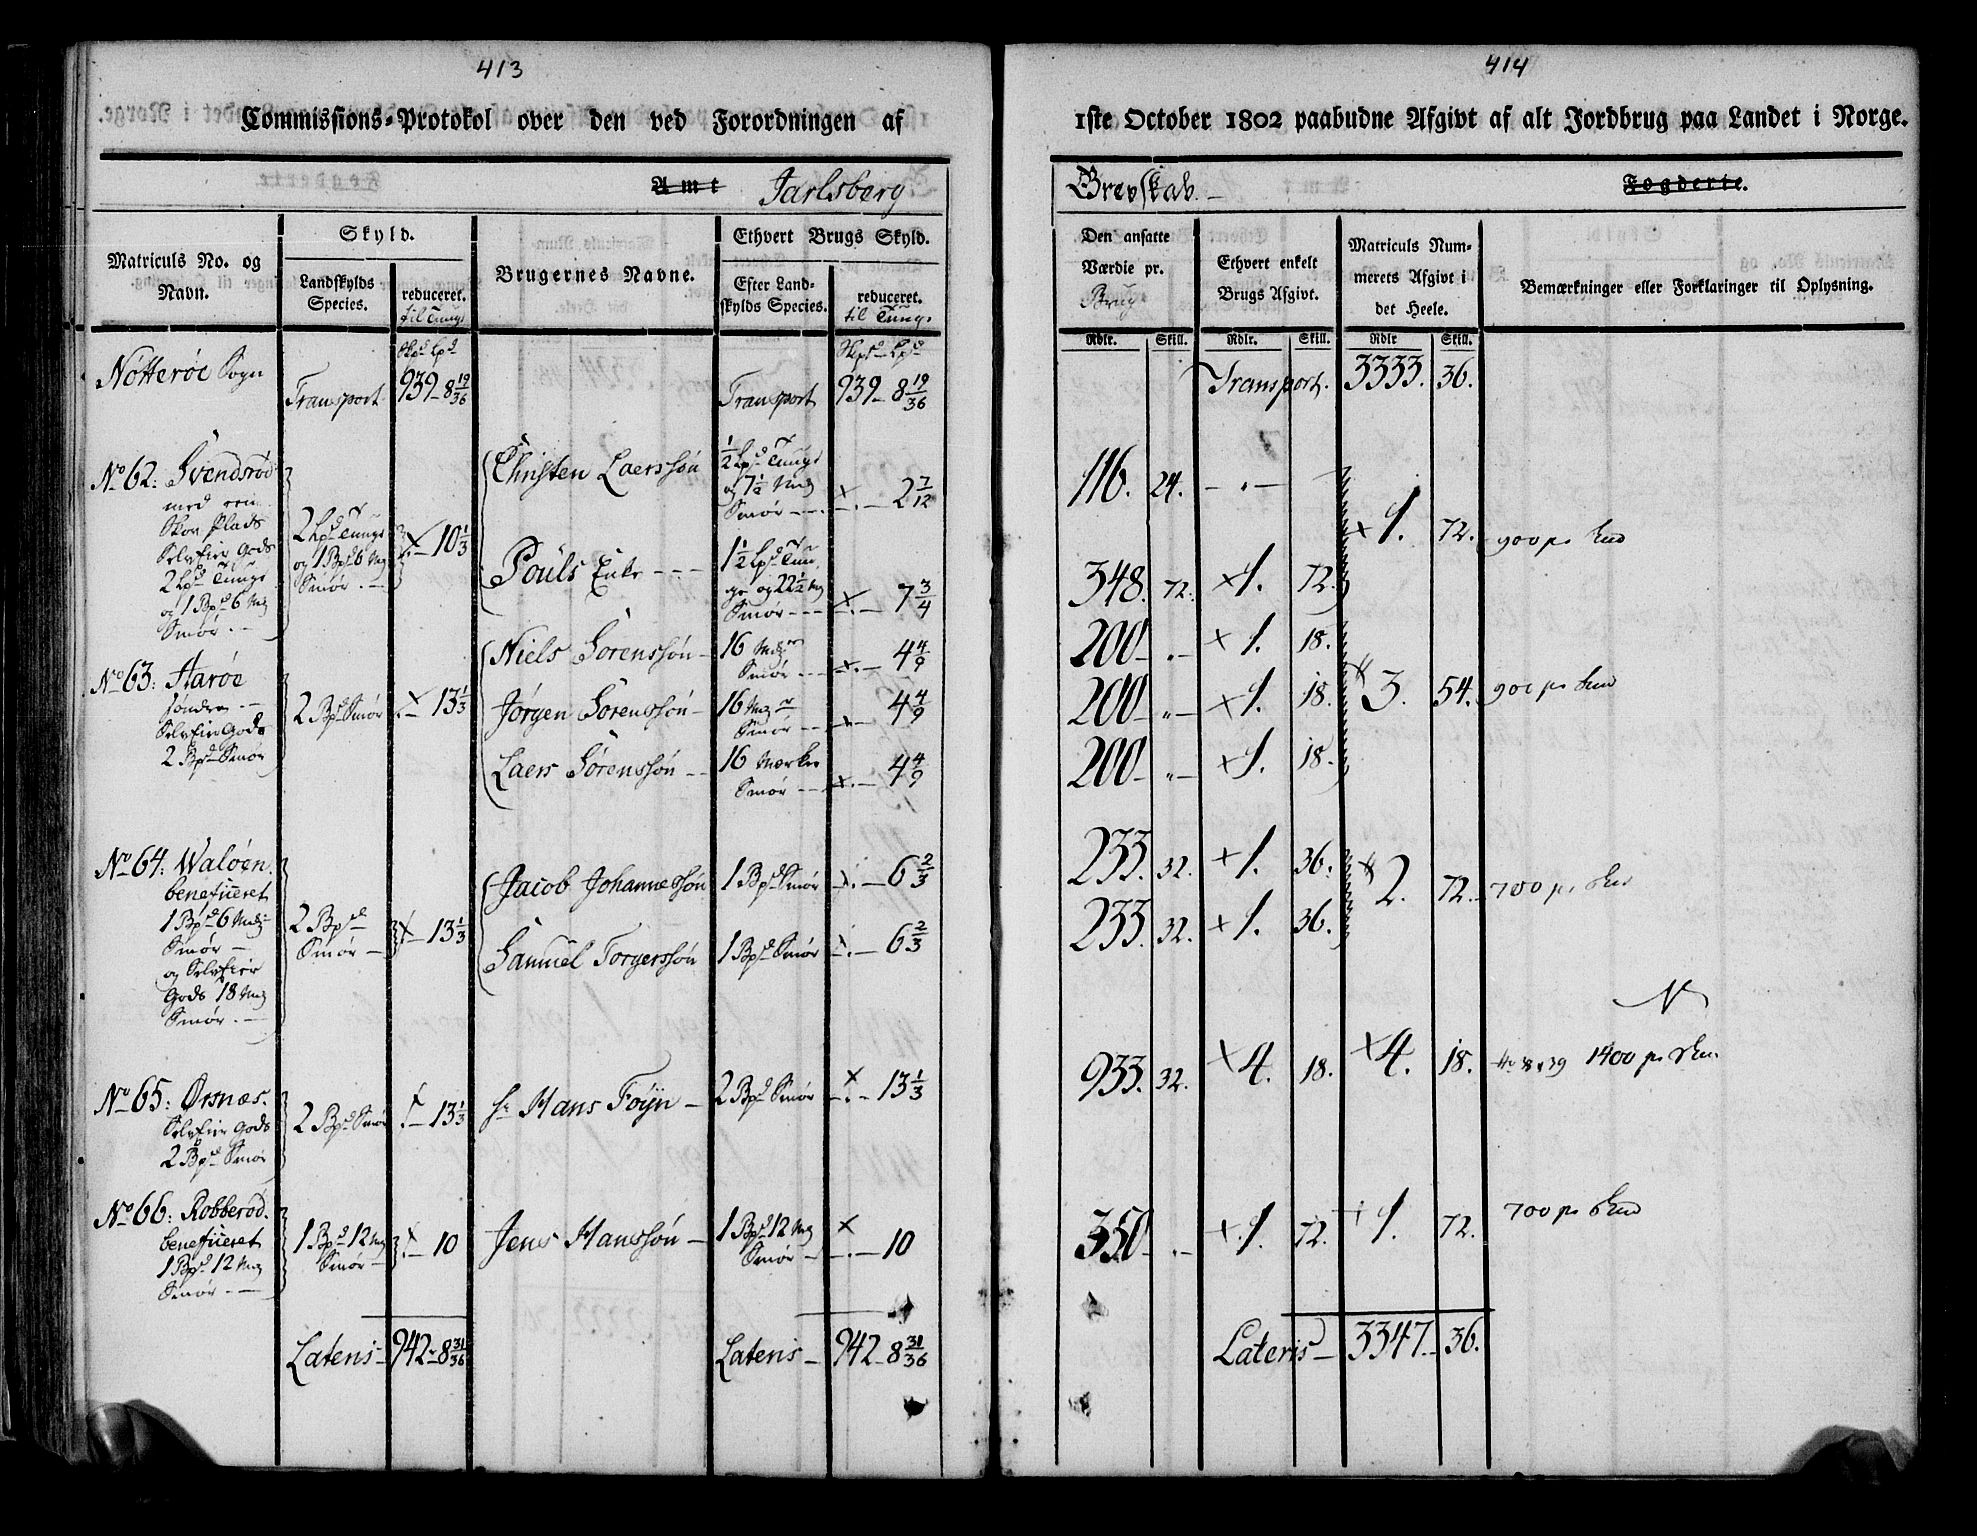 413
Commissions-Protokol over den ved Forordningen af
Amt Jarlsberg
Matriculs No. og
Navn.
Skyld.
Landskylds
Species.
reduceret.
til Tunge
Brugernes Navne.
Ethvert Brugs Skyld.
Efter Land-
skylds Species.
reduceret.
til Tunge
Nötteröe Sogn
Transport
Skpd Lpd
939 - 8 19/36
Transport
Skpd Lpd
939 - 8 19/36
No 62: Svendsröd
med
Skov Plads
Selveier Gods
2 Lpd Tunge
og 1 Bpd 6 Mrk
Smör
2 Lpd Tunge
og 1 Bpd 6 Mrk
Smör
10 1/3
Christen Laerssön
1/2 Lpd Tunge
og 7 1/2 Mrk
Smör
2 7/12
Pouls Enke
1 1/2 Lpd Tun
ge og 22 1/2 Mrk
Smör
7 3/4
No 63: Haröe
söndre
Selveier Gods
2 Bpd Smör
2 Bpd Smör
13 1/3
Niels Sörenssön
16 Mrker
Smör
4 4/9
Jörgen Sörenssön
16 Mrker
Smör
4 4/9
Laers Sörenssön
16 Mærker
Smör
4 4/9
No 64: Walöen
beneficeret
1 Bpd 6 Mrk
Smör
og Selveier
Gods 18 Mrk
Smör
2 Bpd
Smör
13 1/3
Jacob Johannessön
1 Bpd Smör
6 2/3
Samuel Torgerssön
1 Bpd Smör
6 2/3
No 65: Örsnæs
Selveier Gods
2 Bpd Smör
2 Bpd Smör
13 1/3
Hr Hans Föyn
2 Bpd Smör
13 1/3
No 66: Robberöd
beneficeret
1 Bpd 12 Mrk
Smör
1 Bpd 12 Mrk
Smör
10
Jens Hanssön
1 Bpd 12 Mrk
Smör
10
Lateris
942 - 8 31/36
Lateris
942 - 8 31/36
414
1ste October 1802 paabudne Afgivt af alt Jordbrug paa Landet i Norge.
Grevskab. Fogderie.
Den ansatte
Værdie pr.
Brug
Rdlr. Skill.
Ethvert enkelt
Brugs Afgivt.
Rdlr. Skill.
Matriculs Num-
merets Afgivt i
det Heele.
Rdlr Skill.
Bemærkninger eller Forklaringer til Oplysning.
Transport. 3333. 36.
116. 24. - " -
1. 72. 900 pr Skud
348. 72. 1. 72.
200 - " - 1. 18.
200 - " - 1. 18. 3. 54. 900 pr Skud
200 - " - 1. 18.
233. 32. 1. 36. 2. 72. 700 pr Skud
233. 32. 1. 36.
933. 32. 4. 18. 4. 18. 1400 pr Skud
350 - " - 1. 72. 1. 72. 700 pr Skud
Lateris 3347. 36.